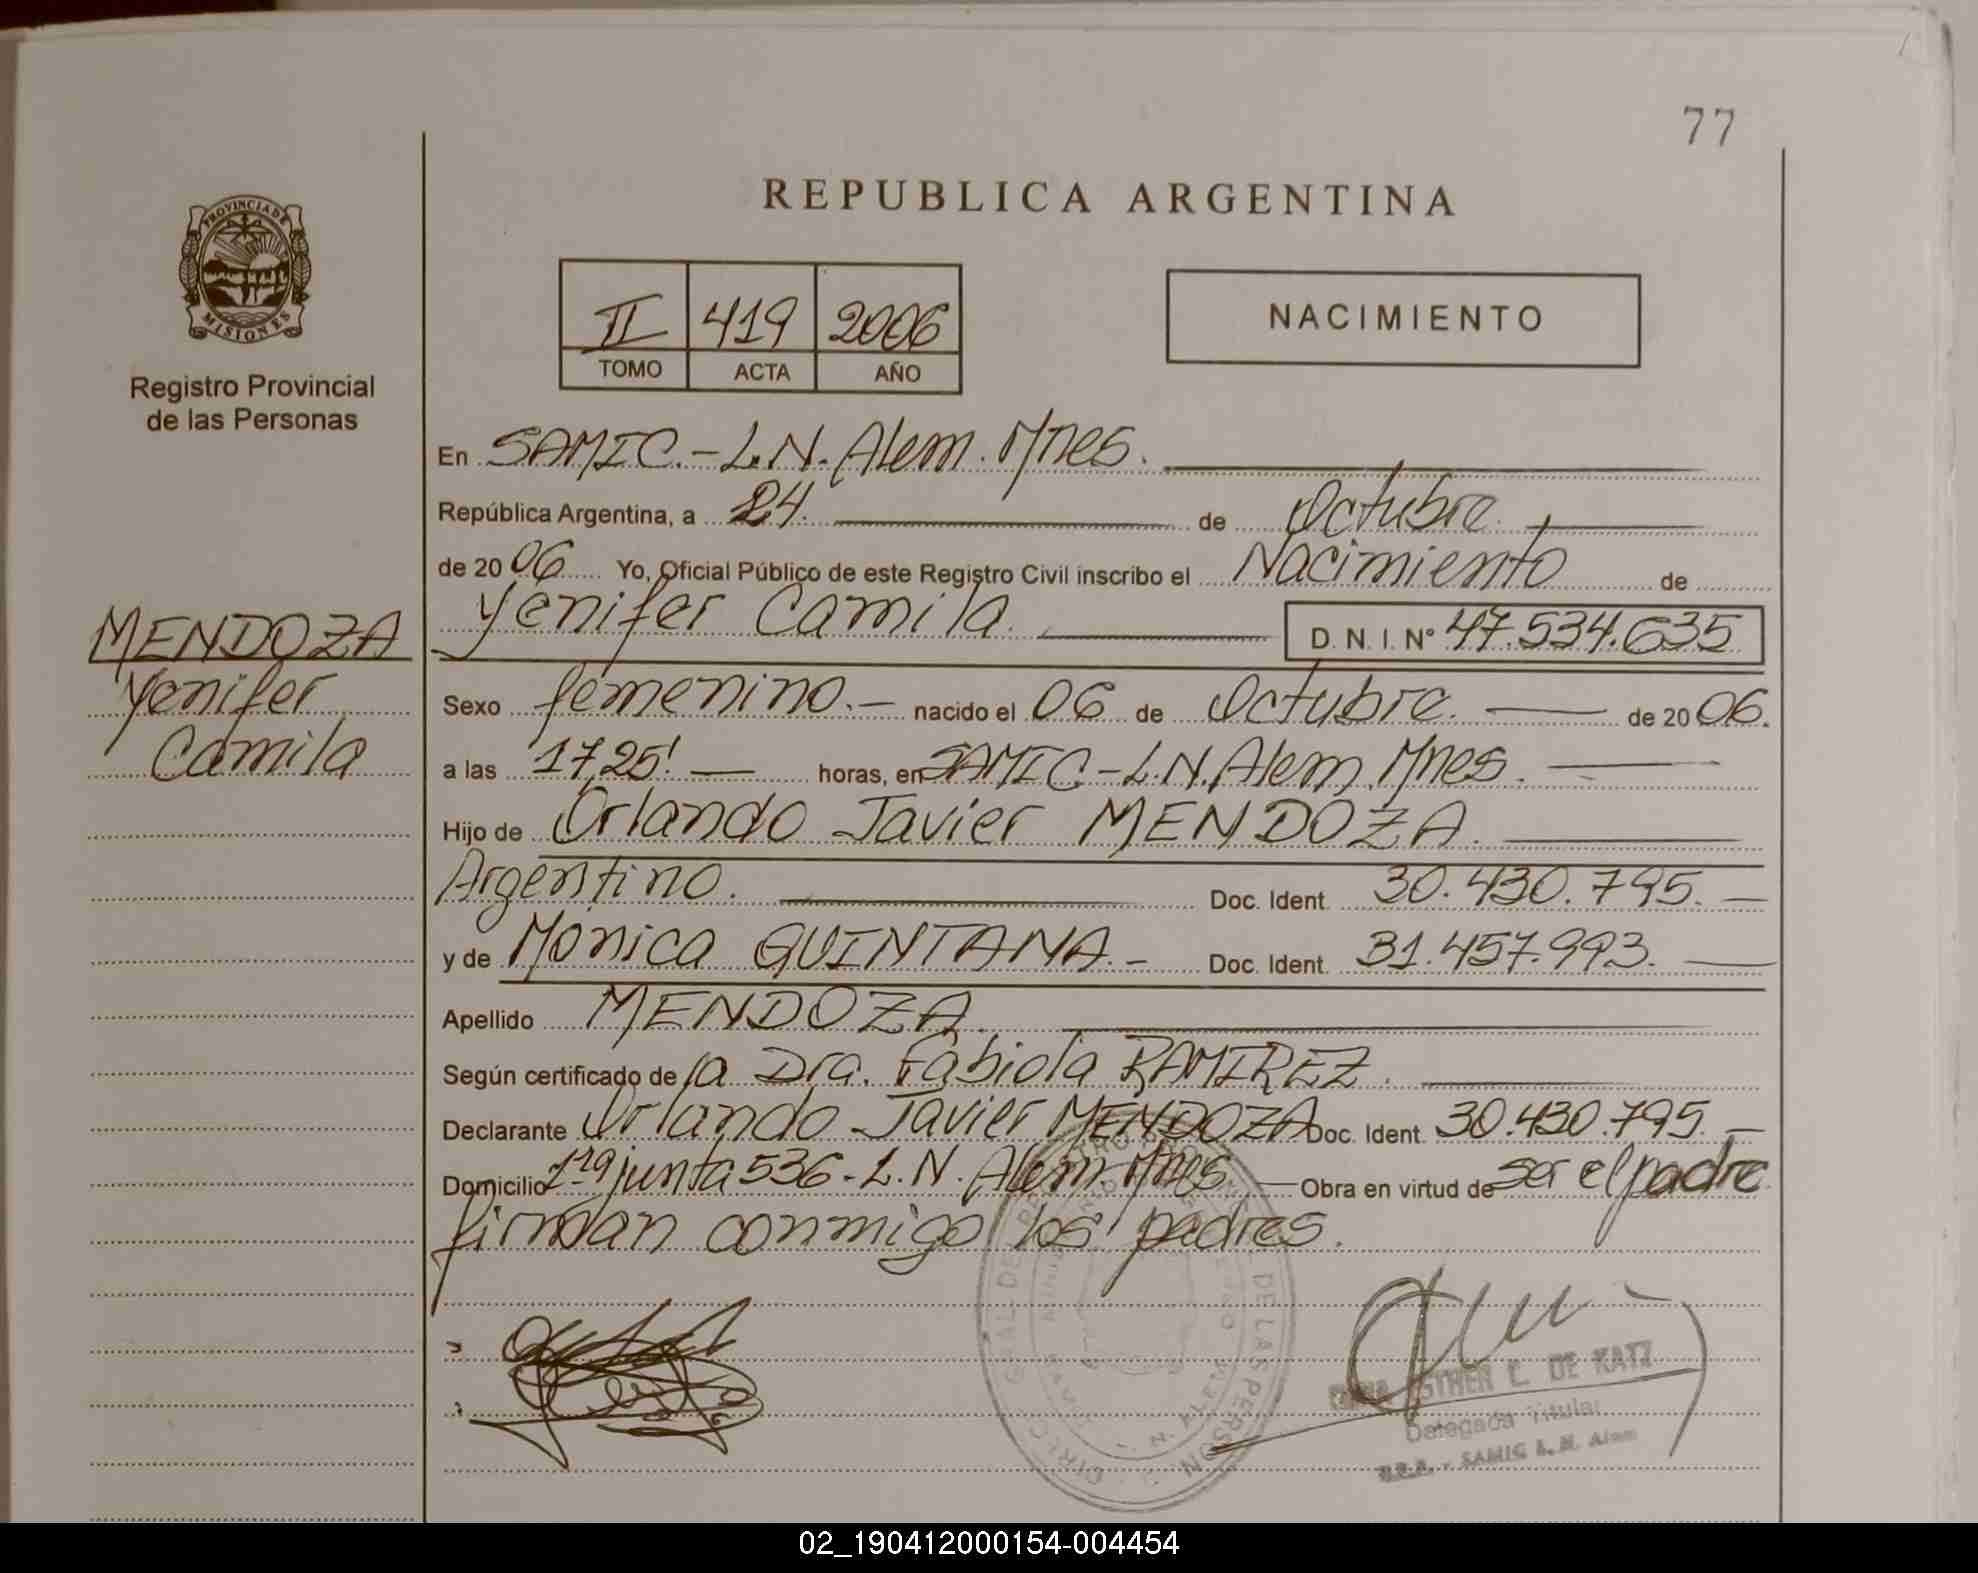 77
REPUBLICA ARGENTINA
PROVINCIA DE
MISIONES
Registro Provincial
de las Personas
II 419 2006
TOMO ACTA AÑO
NACIMIENTO
En SAMIC.-L.N. Alem. Mnes.
República Argentina, a 24. de Octubre.
de 20 06 Yo, Oficial Público de este Registro Civil inscribo el Nacimiento de
Yenifer Camila. D. N. I. Nº 47.534.635
MENDOZA
Yenifer
Camila
Sexo femenino.- nacido el 06 de Octubre. de 20 06.
a las 17,25' horas, en SAMIC-L.N. Alem. Mnes.
Hijo de Orlando Javier MENDOZA.
Argentino. Doc. Ident. 30.430.795.
y de Mónica QUINTANA.- Doc. Ident. 31.457.993.
Apellido MENDOZA.
Según certificado de la Dra. Fabiola RAMIREZ.
Declarante Orlando Javier MENDOZA Doc. Ident. 30.430.795.
Domicilio 1ra junta 536-L.N. Alem. Mnes. Obra en virtud de ser el padre
firman conmigo los padres.
DE LAS PERSONAS
ESTHER C. DE KATZ
Delegada Titular
SAMIC L. N. Alem
02_190412000154-004454